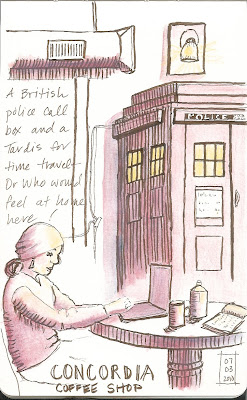 POLICE
A British
police call
box and a
Tardis for
time travel-
Dr Who would
feel at home
here
CONCORDIA
COFFEE SHOP
07
03
2010